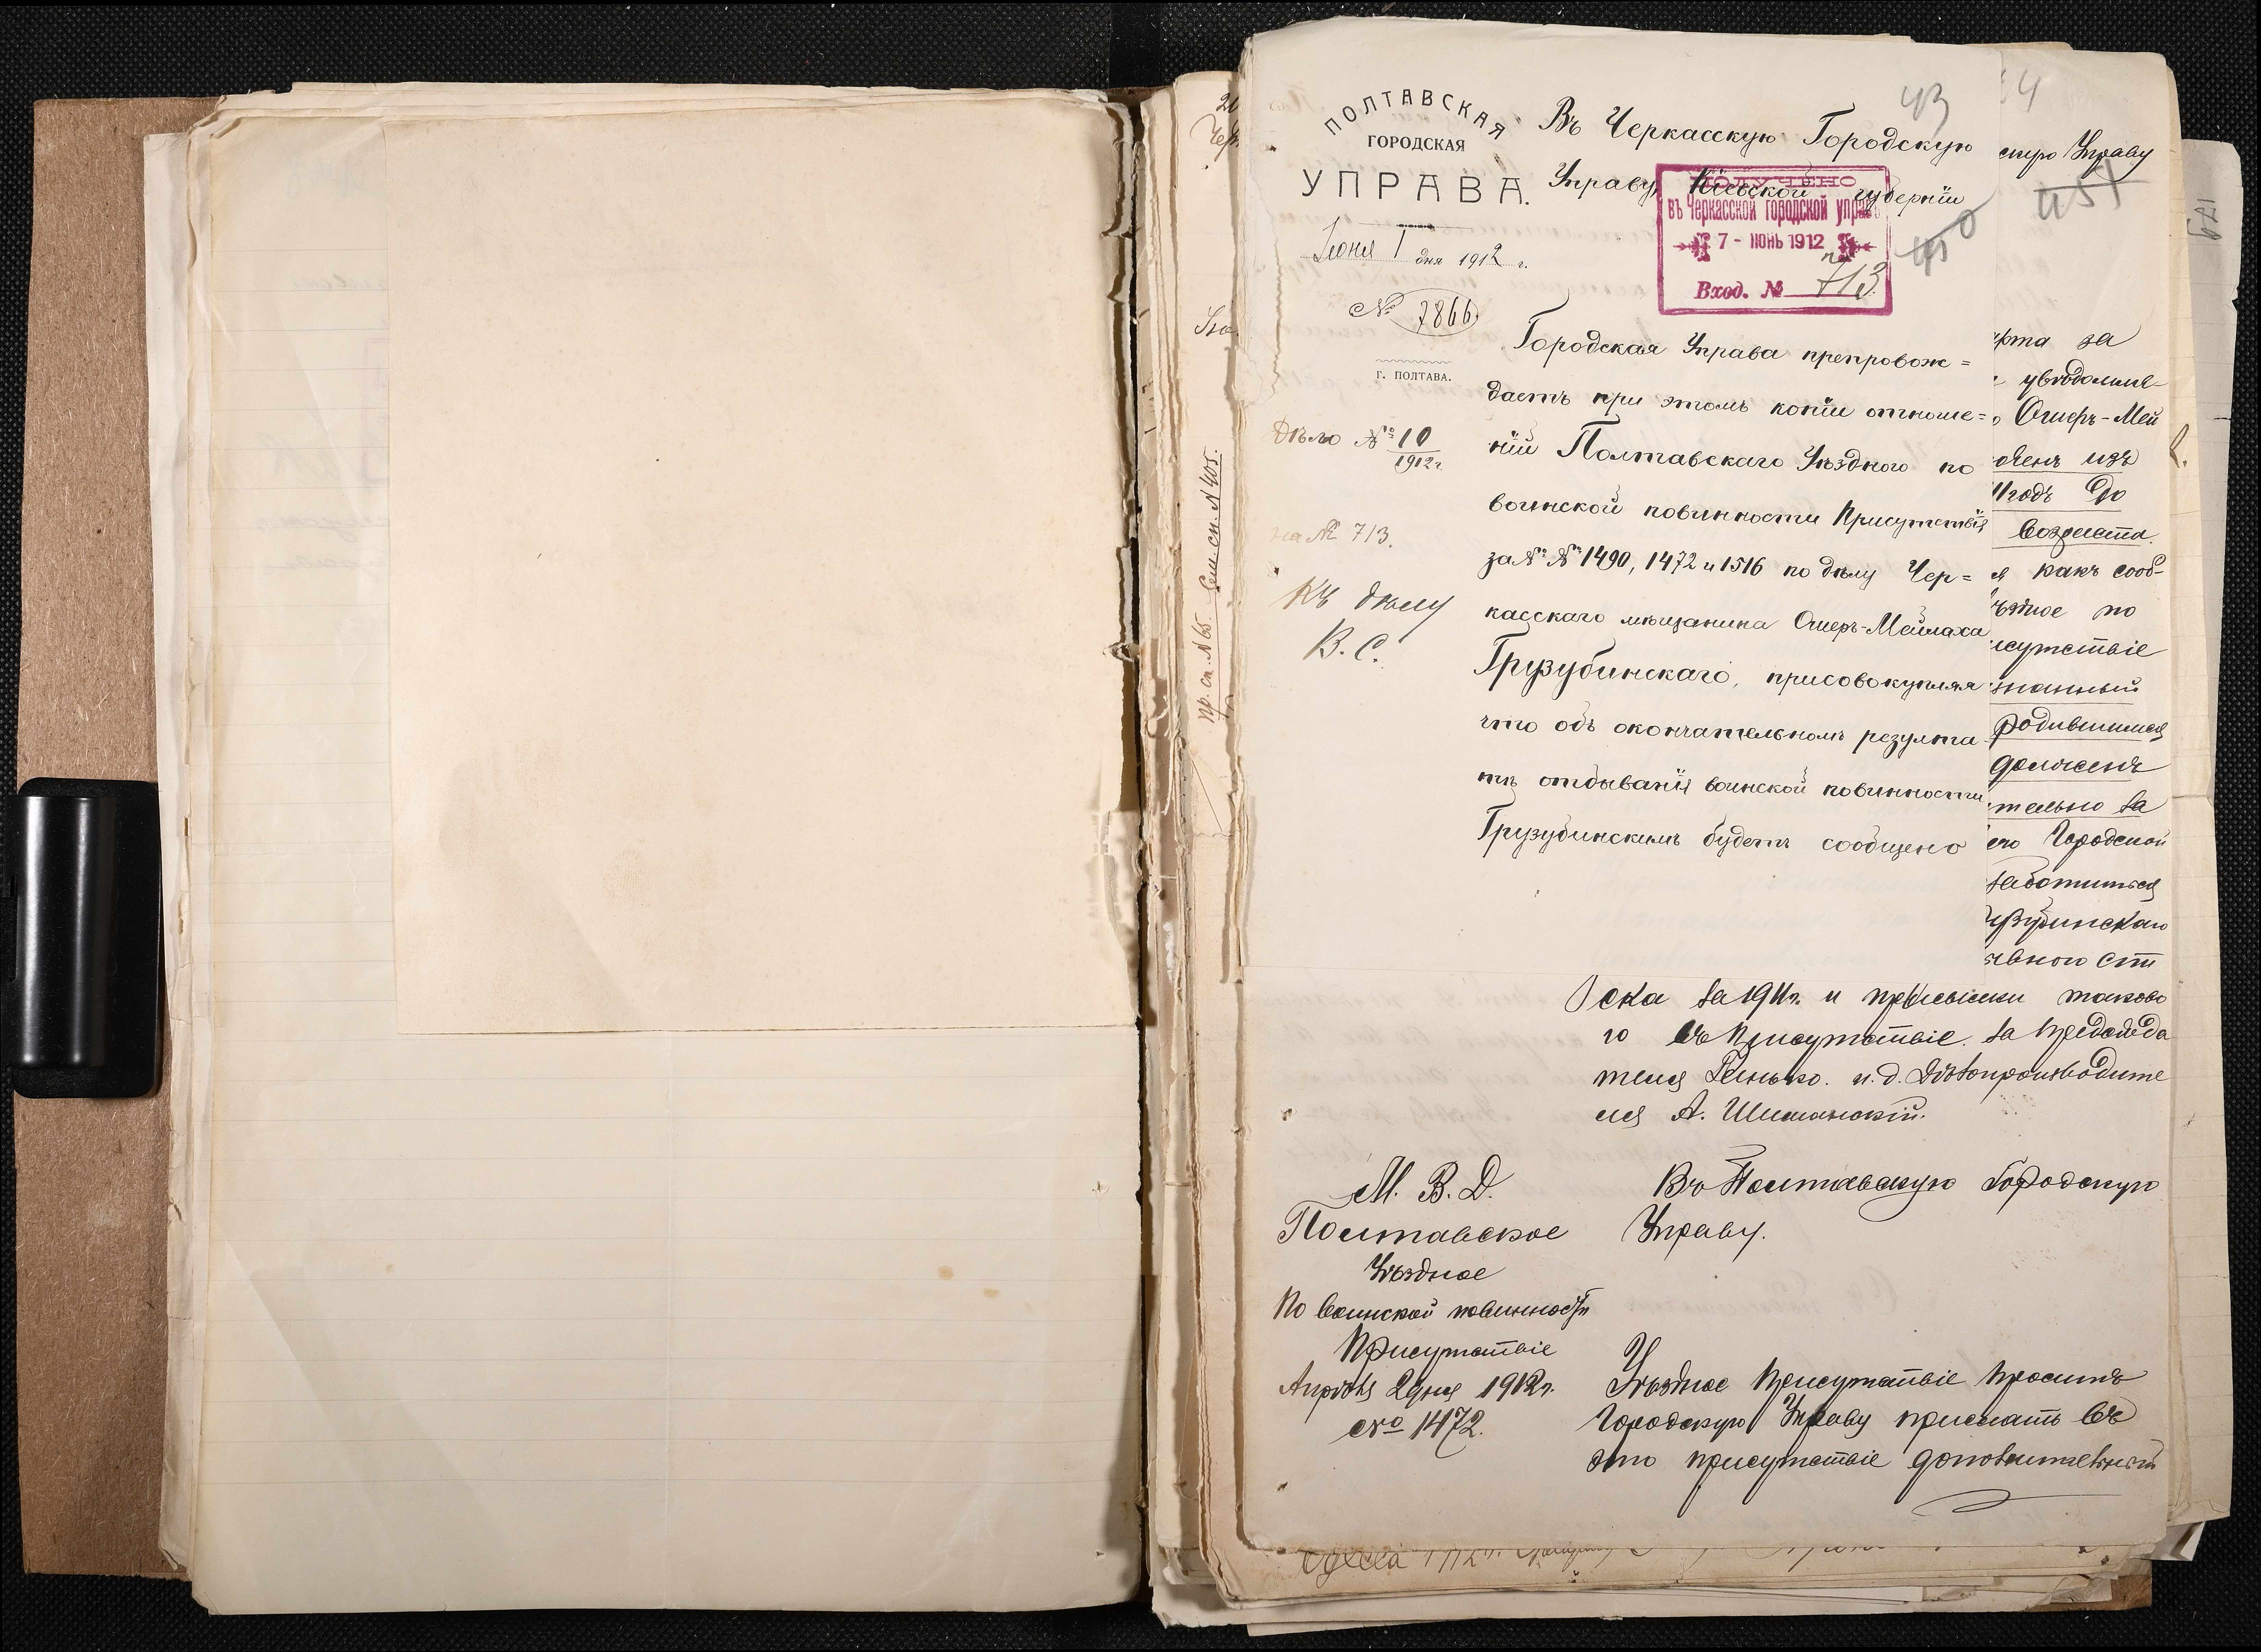 43
ПОЛТАВСКАЯ
ГОРОДСКАЯ
УПРАВА.
Іюня 1 дня 1912 г.
№ 7866.
г. ПОЛТАВА.
Дѣло № 10
1912 г.
на № 713.
Къ дѣлу
В. С.
Въ Черкасскую Городскую
Управу, Кіевской губерніи
ПОЛУЧЕНО
въ Черкасской городской управѣ
7 - ІЮНЬ 1912
Вход. № 713
450
Городская Управа препровож=
даетъ при этомъ копіи отноше=
ній Полтавскаго Уѣзднаго по
воинской повинности Присутствія
за № № 1490, 1472 и 1516 по дѣлу Чер=
касскаго мѣщанина Ошеръ-Мейлаха
Грузубинскаго, присовокупляя
что объ окончательномъ результа
тѣ отбыванія воинской повинности
Грузубинскимъ будетъ сообщено
4
Управу
451
рта за
увѣдомле-
Ошеръ-Мей
оченъ изъ
11 годъ до
возраста.
я какъ сооб-
ѣздное по
исутствіе
знанный
родившимся
долженъ
тельно за
его Городской
заботиться
узубинскаго
вного спи
ска за 1911 г. и присылки таково
го въ Присутствіе. За Предсѣда
теля Генько. и. д. Дѣлопроизводите
ля А. Шиманскій.
М. В. Д.
Полтавское
Уѣздное
По воинской повинности
Присутствіе
Апрѣля 2 дня 1912 г.
№ 1472.
Въ Полтавскую Городскую
Управу.
Уѣздное Присутствіе проситъ
Городскую Управу прислать въ
это присутствіе дополнительный
пр. сп. № 65. Сем. сп. № 405.
179